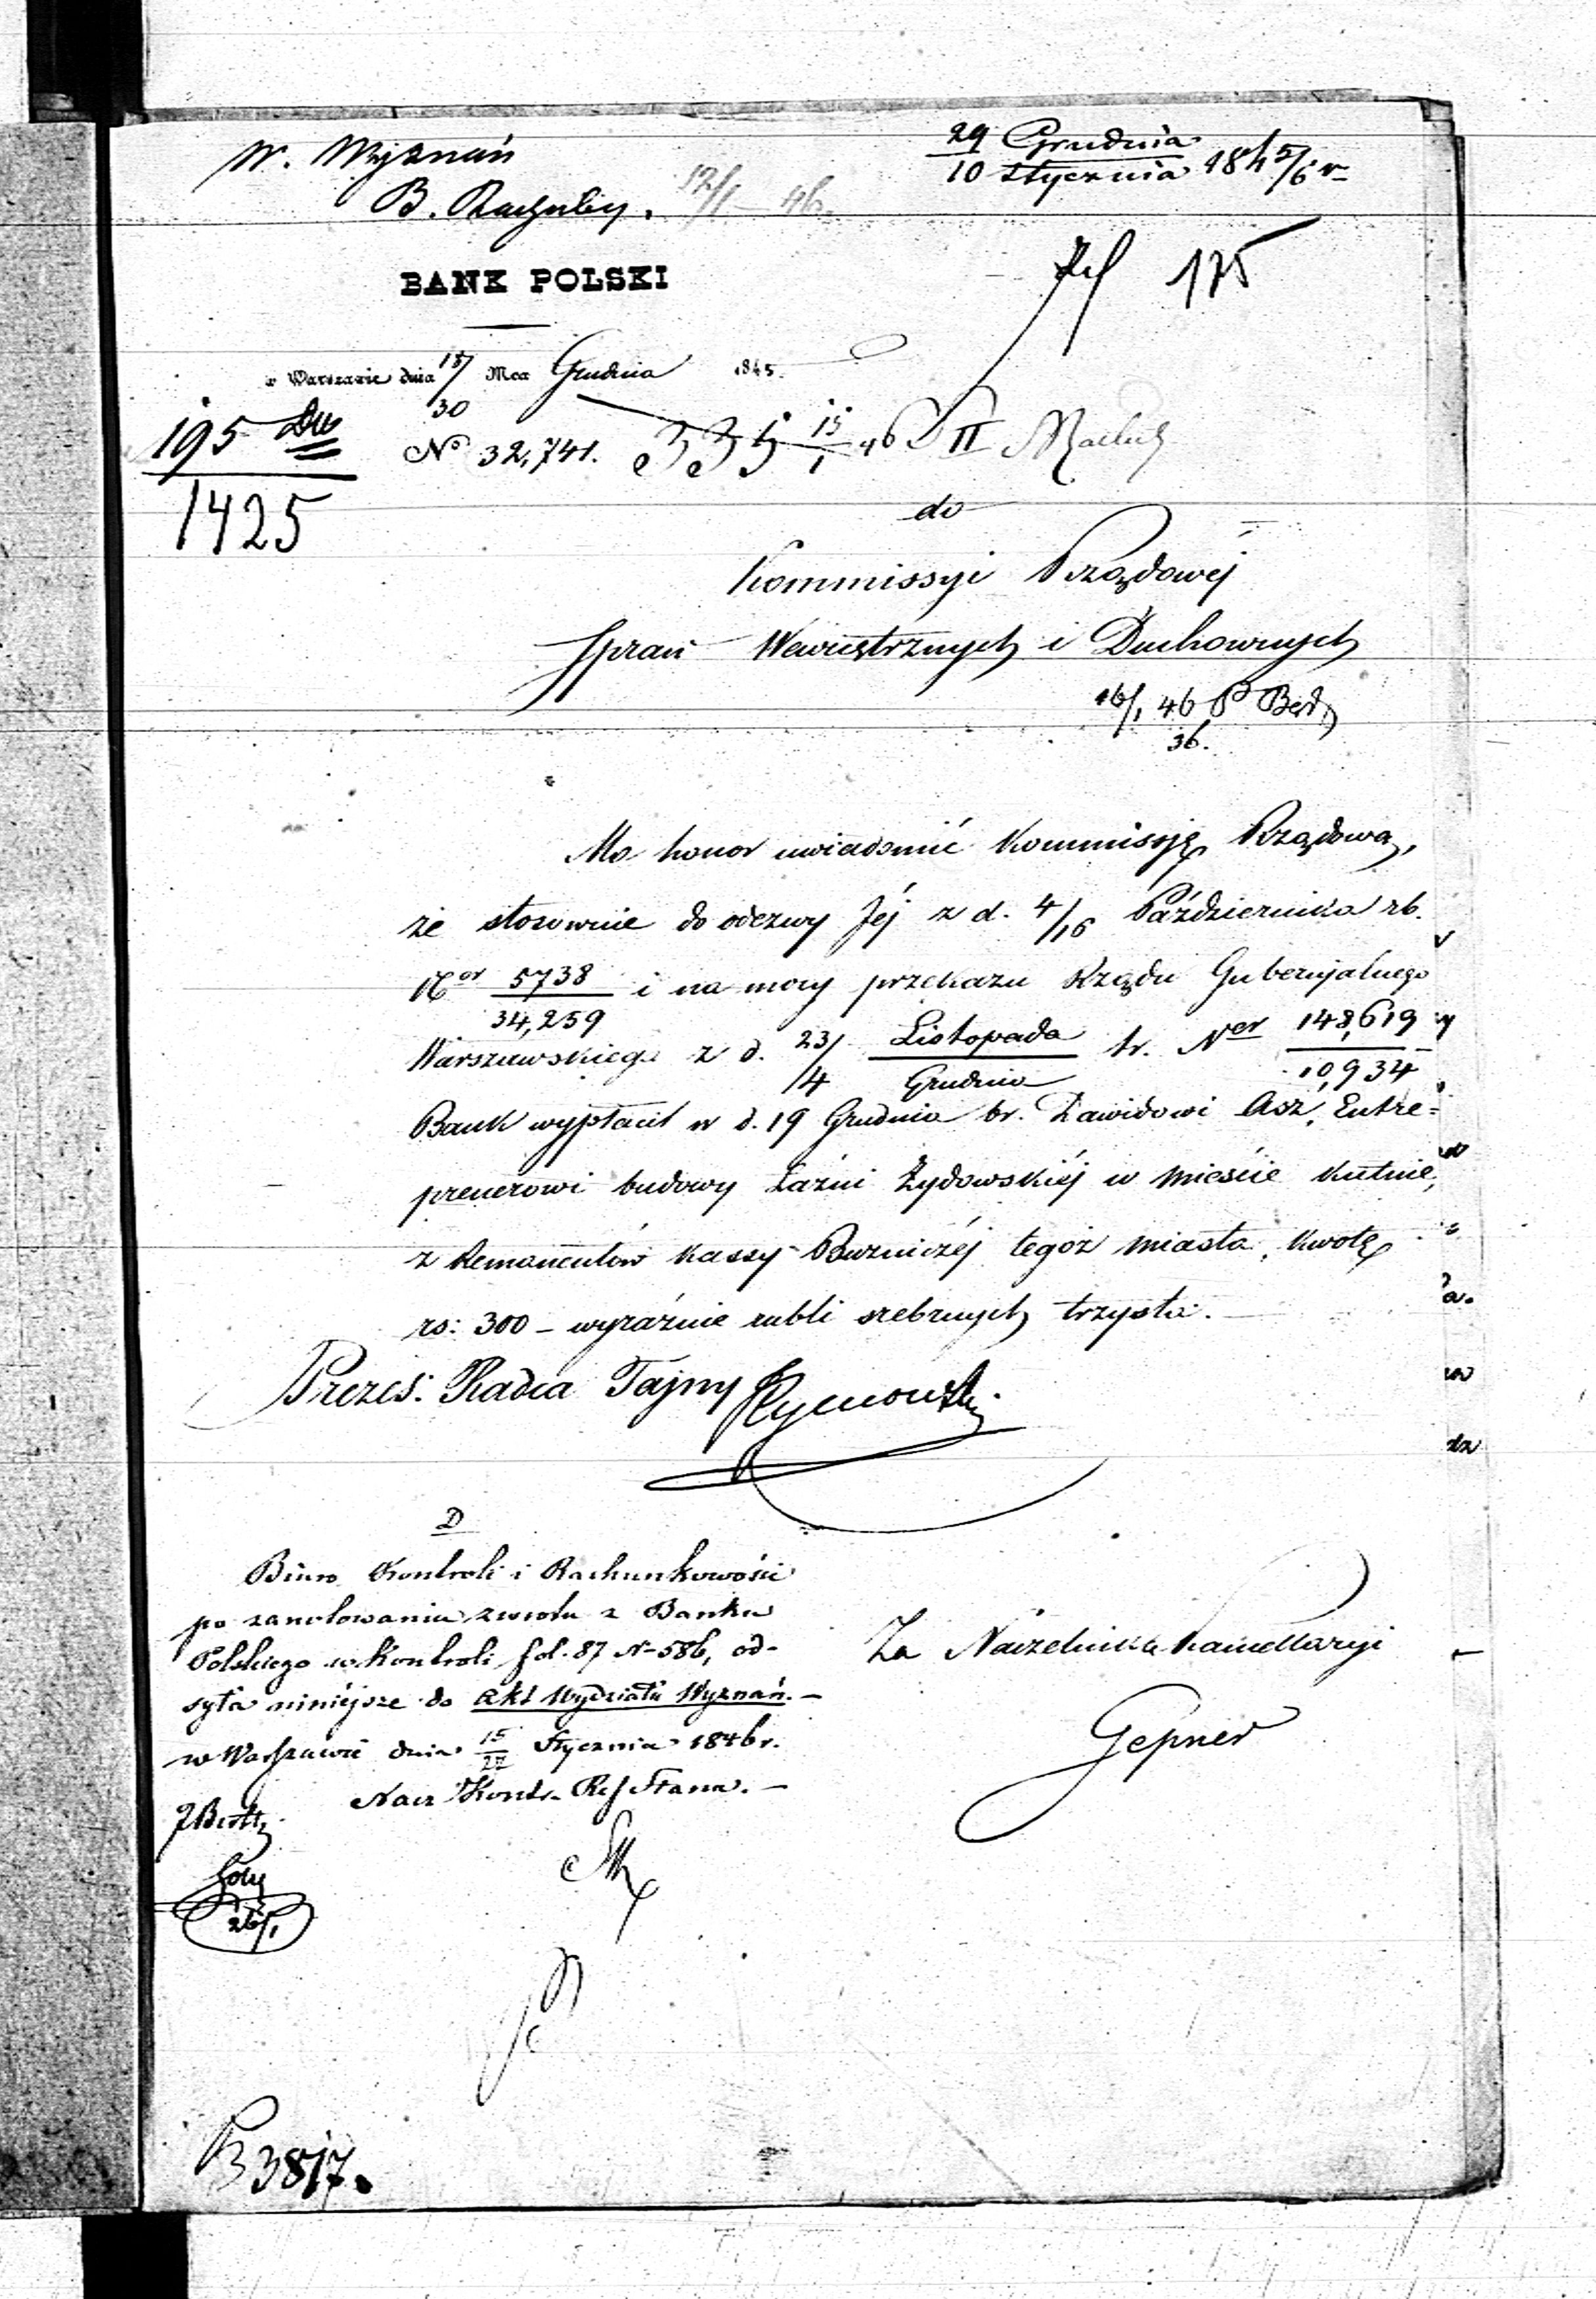 W. Wyznań
B. Rachuby.
12/1 46.
29 Grudnia
10 Stycznia 1845/6 r
175
BANK POLSKI
w Warszawie dnia 18/30 Mca Grudnia 1845.
195
1425
No 32,741. 335 15/1 46 II
do
Kommissyi Rządowéj
Spraw Wewnętrznych i Duchownych
16/1 46
36.
Ma honor uwiadomić Kommissyę Rządową,
że stosownie do odezwy Jéj z d. 4/16 Października rb.
Ner 5738/34,259 i na mocy przekazu Rządu Gubernjalnego
Warszawskiego z d. 23/4 Listopada/Grudnia br. Ner 148,619/10,934
Bank wypłacił w d. 19 Grudnia br. Dawidowi Asz, Entre=
prenerowi budowy Łaźni Żydowskiéj w mieście Kutnie,
z Remanentów Kassy Bużniczéj tegoż miasta, kwotę
rs: 300 – wyraźnie rubli srebrnych trzysta.
Prezes: Radca Tajny
D
Biuro Kontroli i Rachunkowości
po zanotowaniu zwrotu z Banku
Polskiego w Kontroli fol. 87 N 586, od-
syła niniejsze do Akt Wydziału Wyznań. –
w Warszawie dnia 15/27 Stycznia 1846 r.
Nacz Kontr. Ref Stanu. –
26/1
Za Naczelnika Kancellaryi
Gepner
B 3817.